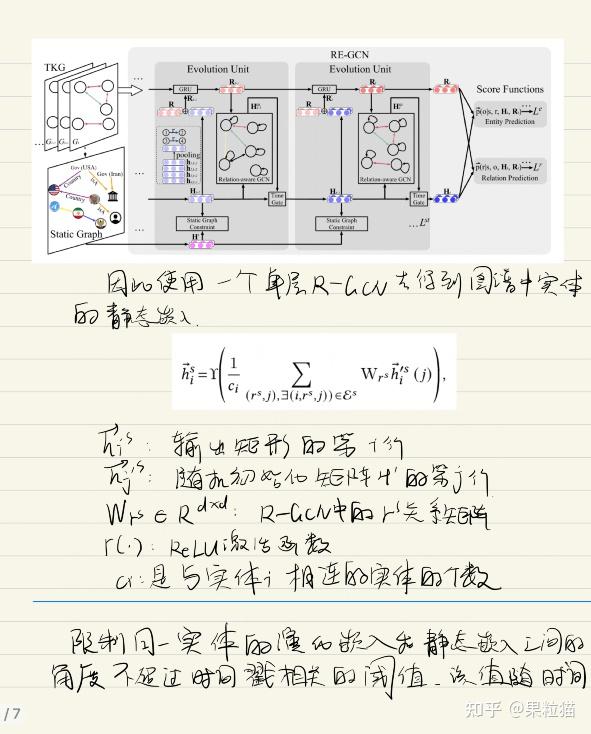 RE-GCN
TKG
Evolution Unit
Evolution Unit
Score Functions
GRU
GRU
R
pooling
Relation-aware GCN
Relation-aware GCN
Entity Prediction
Relation Prediction
Time Gate
Time Gate
Static Graph Constraint
Static Graph Constraint
Gov (USA)
Gov (Iran)
Country
Country
Static Graph
因此使用一个单层R-GCN去得到图谱中实体
的静态嵌入.
输出矩形的第i行
随机初始化矩阵H'的第j行
Wrs ∈ R^{d×d}: R-GCN中的r^s关系矩阵
r(·): ReLU激活函数
ci: 是与实体i相连的实体的个数
限制同一实体的演化嵌入和静态嵌入之间的
角度不超过时间戳相关的阈值. 该值随时间
/7
知乎 @果粒猫